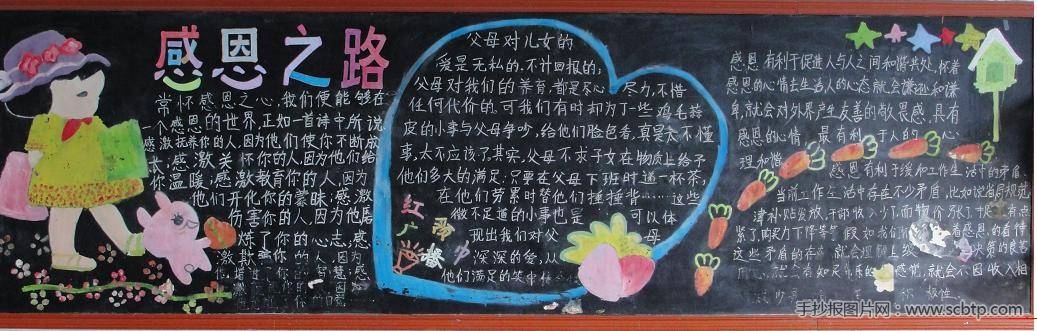 感恩之路
常怀感恩之心,我们便能够在
一个感恩的世界,正如一首诗中所说
感激抚养你的人,因为他们使你不断成
长;感激关怀你的人,因为他们给
你温暖,感激教育你的人,因为
他们开化你的蒙昧;感激
伤害你的人,因为他磨
炼了你的心志,感
激 你的人,因为
智慧;感
父母对儿女的
爱是无私的,不计回报的;
父母对我们的养育,都是尽心 尽力,不惜
任何代价的,可我们有时却为了一些鸡毛蒜
皮的小事与父母争吵,给他们脸色看,真是太不懂
事,太不应该了,其实,父母不求子女在物质上给予
他们多大的满足,只要在父母下班时道一杯茶,
在他们劳累时替他们捶捶背……这些
微不足道的小事也是 可以体
现出我们对父 母
深深的爱,从
他们满足的笑中体
红
广
感恩有利于促进人与人之间和谐共处,怀着
感恩的心情去生活人的心态就会谦逊和谦
卑,就会对外界产生友善的敬畏感,具有
感恩的心情 最有利于人的 心
理和谐
感恩有利于缓和工作生活中的矛盾,
当前工作生活中存在不少矛盾,比如说
津补贴发放,干部收入少,而物价 张 有点
紧了,购买力下降等等 假如我们 着感恩的看待
这些矛盾的存在 就会理解上级 决策的良苦
就会有知足 乐的 感觉,就会不因收入相
手抄报图片网:www.scbtp.com